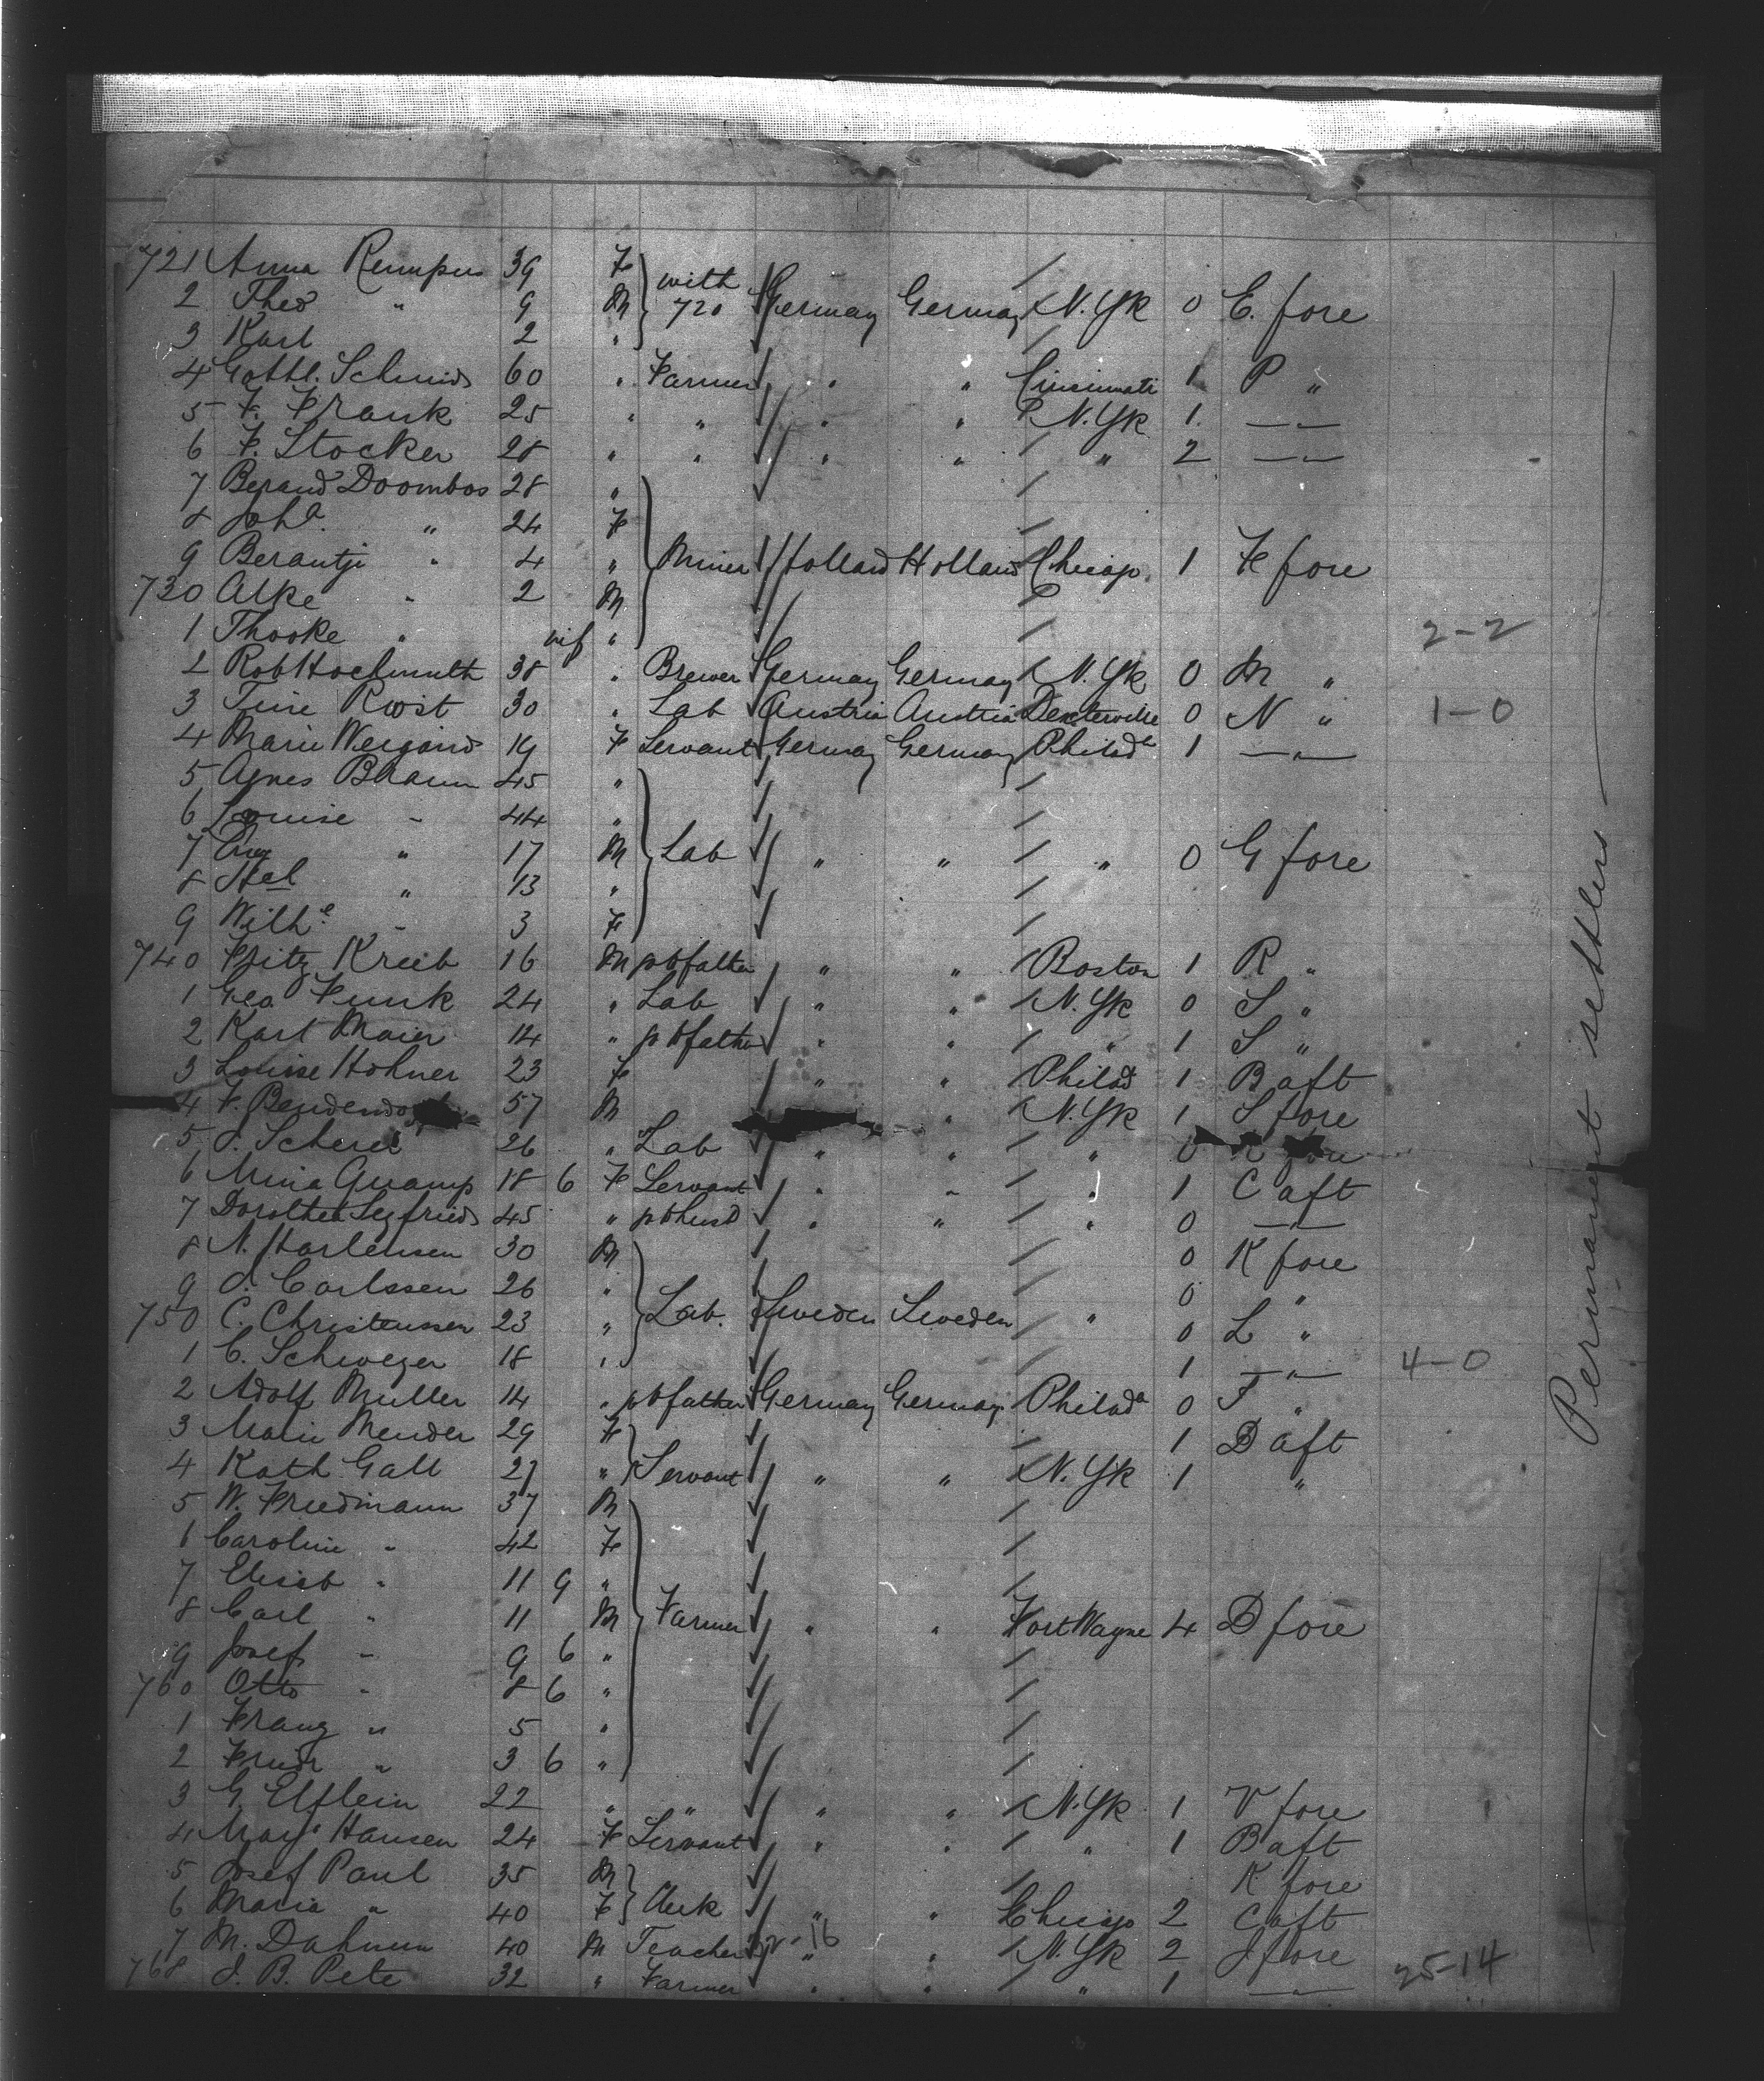 721 Anna Kempen 39 F
2 Theo " 9 M with 720 Germany Germany N. Yk 0 E. fore
3 Karl 2 "
4 Gottl. Schmid 60 " Farmer " " Cincinnati 1 P "
5 F. Frank 25 " " " " N. Yk 1 — " —
6 F. Stocker 28 " " " " " 2 — " —
7 Berand Doombos 28 "
8 Joh^a. " 24 F
9 Berantji " 4 " Miner Holland Holland Chicago 1 F fore
730 Alke " 2 M
1 Thooke " inf "
2-2
2 Rob Hochmuth 38 " Brewer Germany Germany N. Yk 0 M "
3 Tine Roost 30 " Lab Austria Austria Dexterville 0 N " 1-0
4 Marie Weigand 19 F Servant Germany Germany Philad^a 1 — " —
5 Agnes Braun 45 "
6 Louise " 44 "
7 " 17 M Lab " " " 0 G fore
8 " 13 "
9 Wilh^e " 3 F
740 Fritz Kreib 16 M to father " " Boston 1 R "
1 Geo Funk 24 " Lab " " N. Yk 0 S "
2 Karl Maier 14 " to father " " " 1 S "
3 Louise Hohner 23 F " " Philad 1 B aft
4 F. 57 M " N. Yk 1 S fore
5 J. Scherer 26 " Lab " " " 0
6 Mina Quamp 18 6 F Servant " " " 1 C aft
7 Dorothea Segfried 45 " to husb " " " 0 — " —
8 N. Harlensen 30 M 0 K fore
9 J. Carlssen 26 " 0 "
750 C. Christenssen 23 " Lab. Sweden Sweden " 0 L "
1 C. Schweger 18 " 1 — " — 4-0
2 Adolf Muller 14 " to father Germany Germany Philad^a 0 T "
3 Marie Mender 29 F 1 D aft
4 Kath Gall 27 " Servant " " N. Yk 1 "
5 W. Friedmann 37 M
6 Caroline " 42 F
7 Elisab " 11 9 "
8 Carl " 11 M Farmer " " Fort Wayne 4 D fore
9 Josef " 9 6 "
760 Otto " 8 6 "
1 Franz " 5 "
2 Friedr " 3 6 "
3 G. Elflein 22 " " " " N. Yk 1 V fore
4 Marg^e Hansen 24 F Servant " " " 1 B aft
5 Josef Paul 35 M K fore
6 Maria " 40 F Clerk " " Chicago 2 C aft
7 M. Dahmen 40 M Teacher " " N. Yk 2 J fore
768 J. B. Pete 32 " Farmer " " " 1 — " — 25-14
Permanent settlers